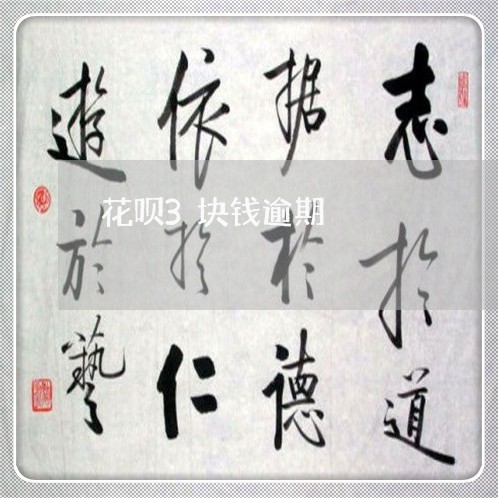 志於道
据於德
依於仁
遊於藝
花呗3 块钱逾期